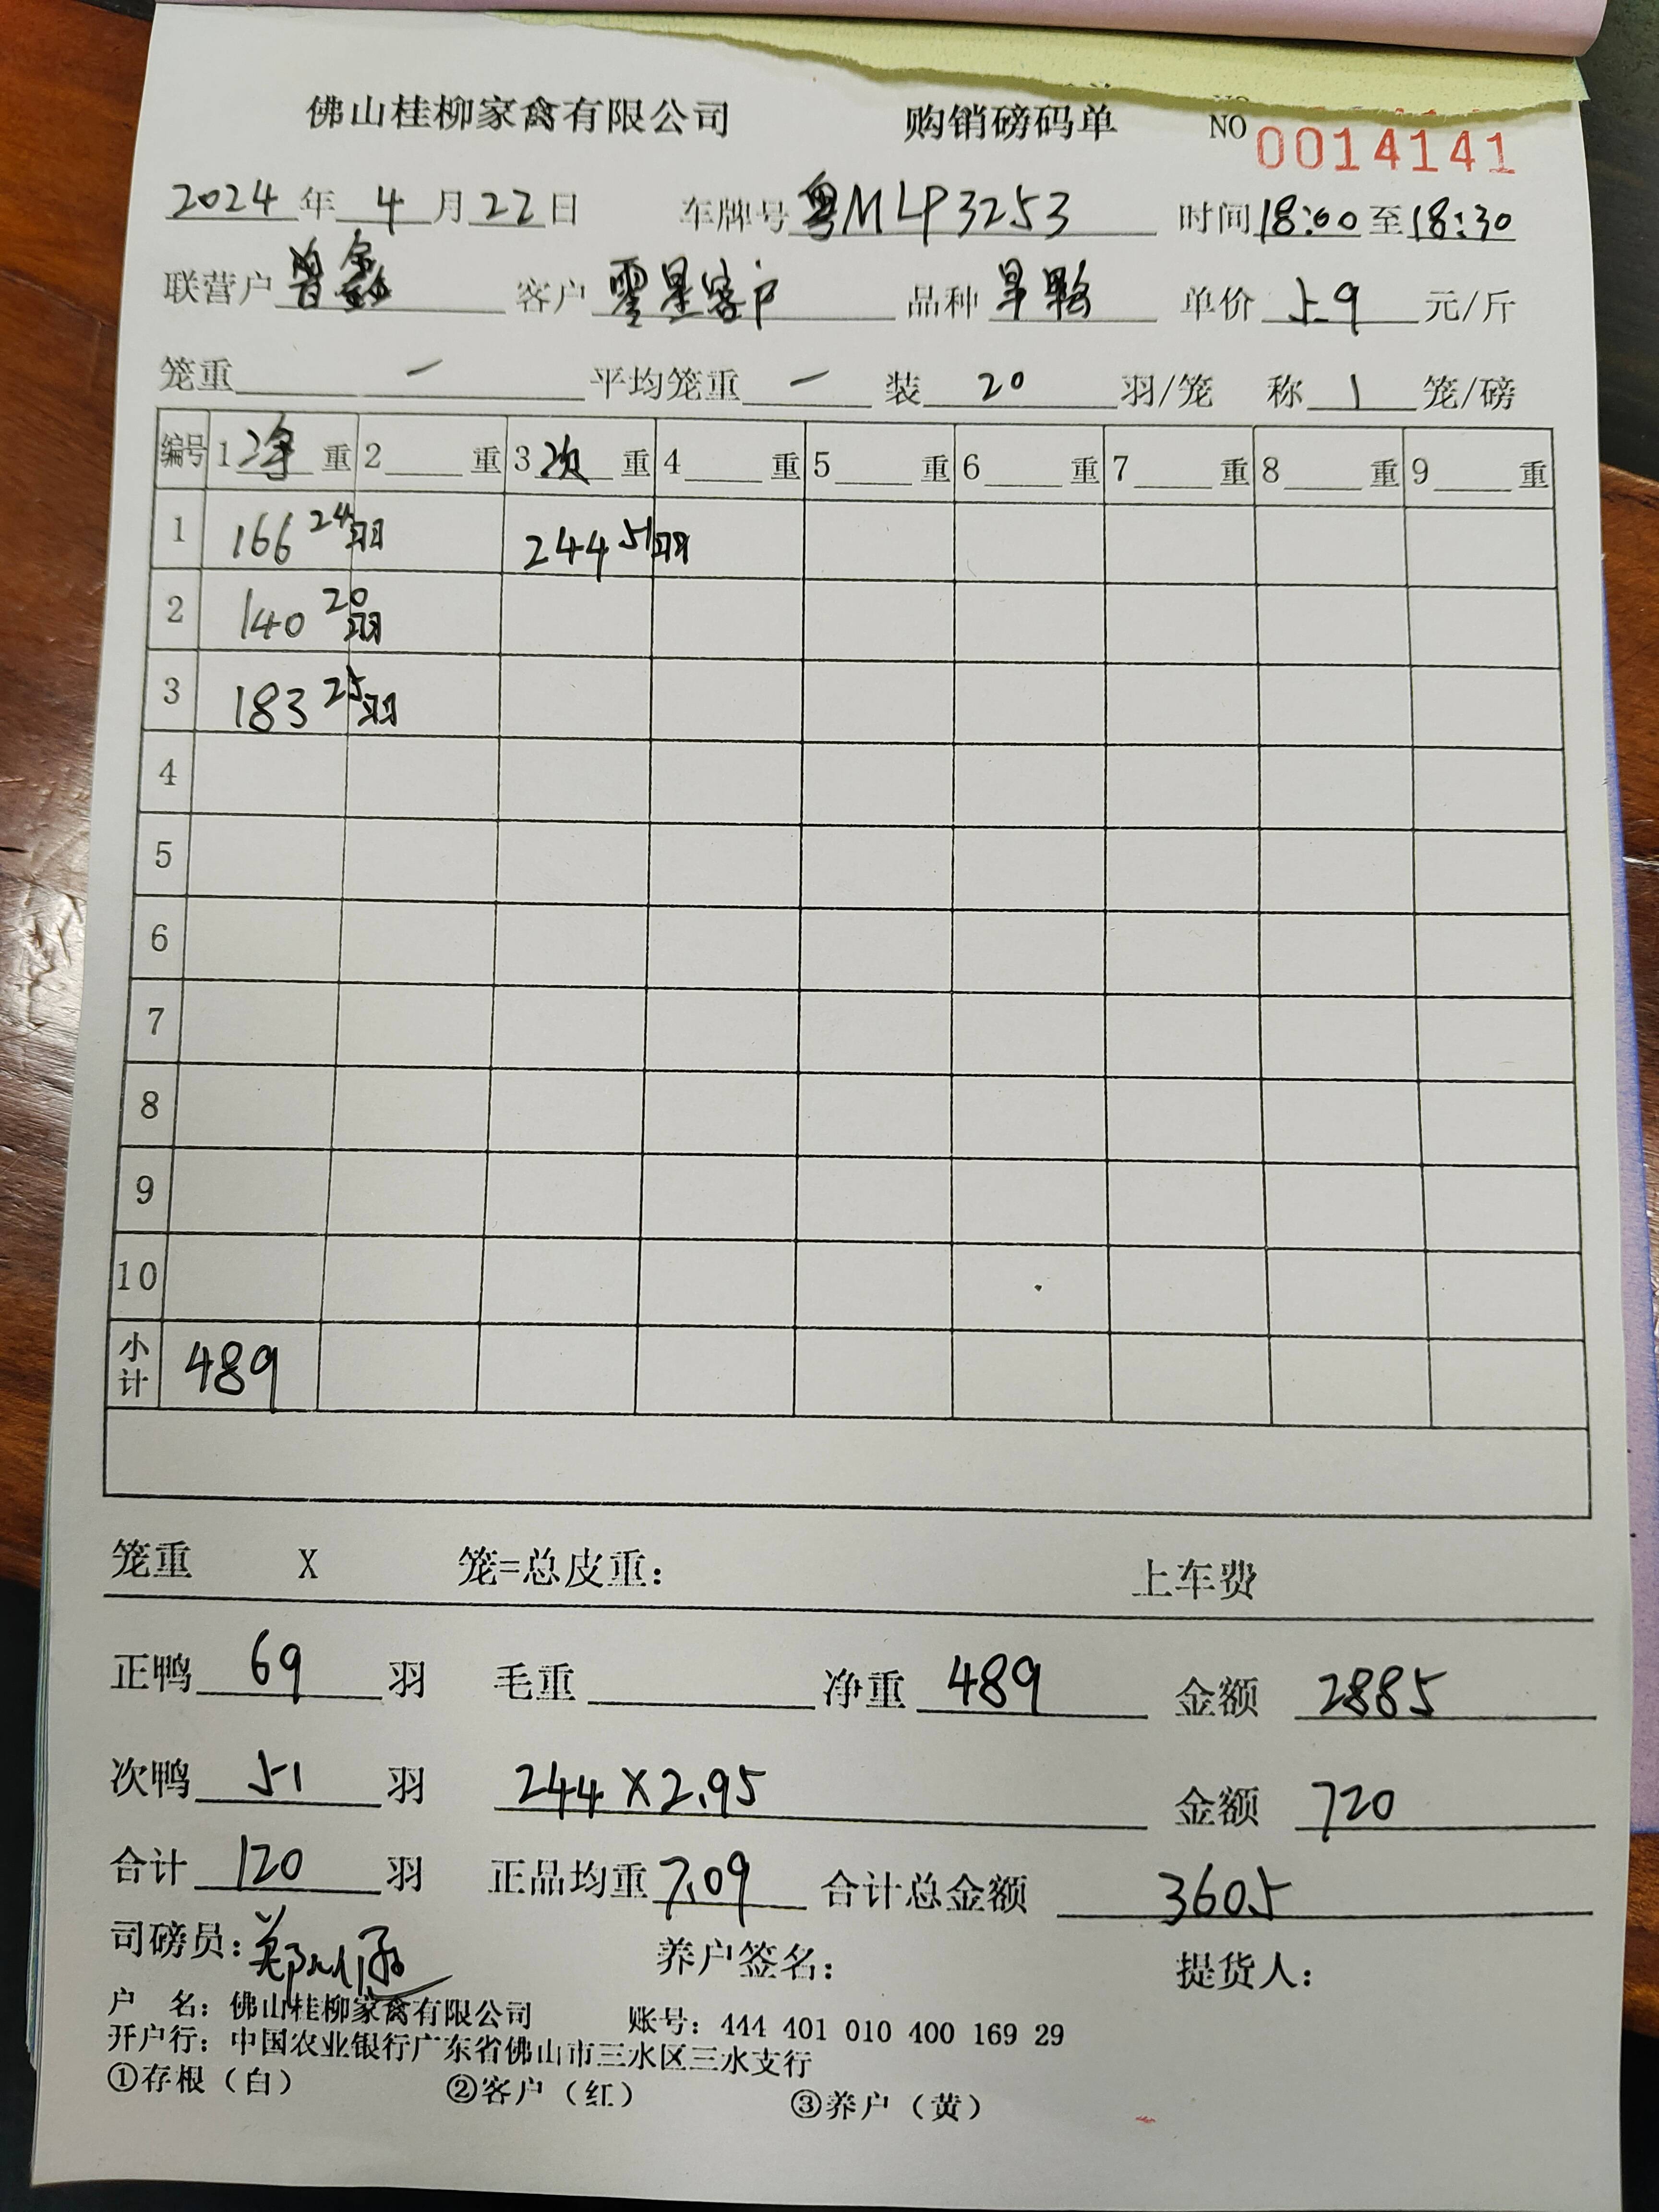 佛山桂柳家禽有限公司 购销磅码单 NO 0014141
2024年4月22日 车牌号粤MLP3253 时间18:00至18:30
联营户曾鑫 客户零星客户 品种旱鸭 单价5.9元/斤
笼重 — 平均笼重 — 装20羽/笼 称1笼/磅
编号 1净重 2重 3次重 4重 5重 6重 7重 8重 9重
1 166 24羽 244 51羽
2 140 20羽
3 183 25羽
4
5
6
7
8
9
10
小计 489
笼重 X 笼=总皮重: 上车费
正鸭69羽 毛重 净重489 金额2885
次鸭51羽 244×2.95 金额720
合计120羽 正品均重7.09 合计总金额3605
司磅员: 养户签名: 提货人:
户 名: 佛山桂柳家禽有限公司 账号: 444 401 010 400 169 29
开户行: 中国农业银行广东省佛山市三水区三水支行
①存根（白） ②客户（红） ③养户（黄）